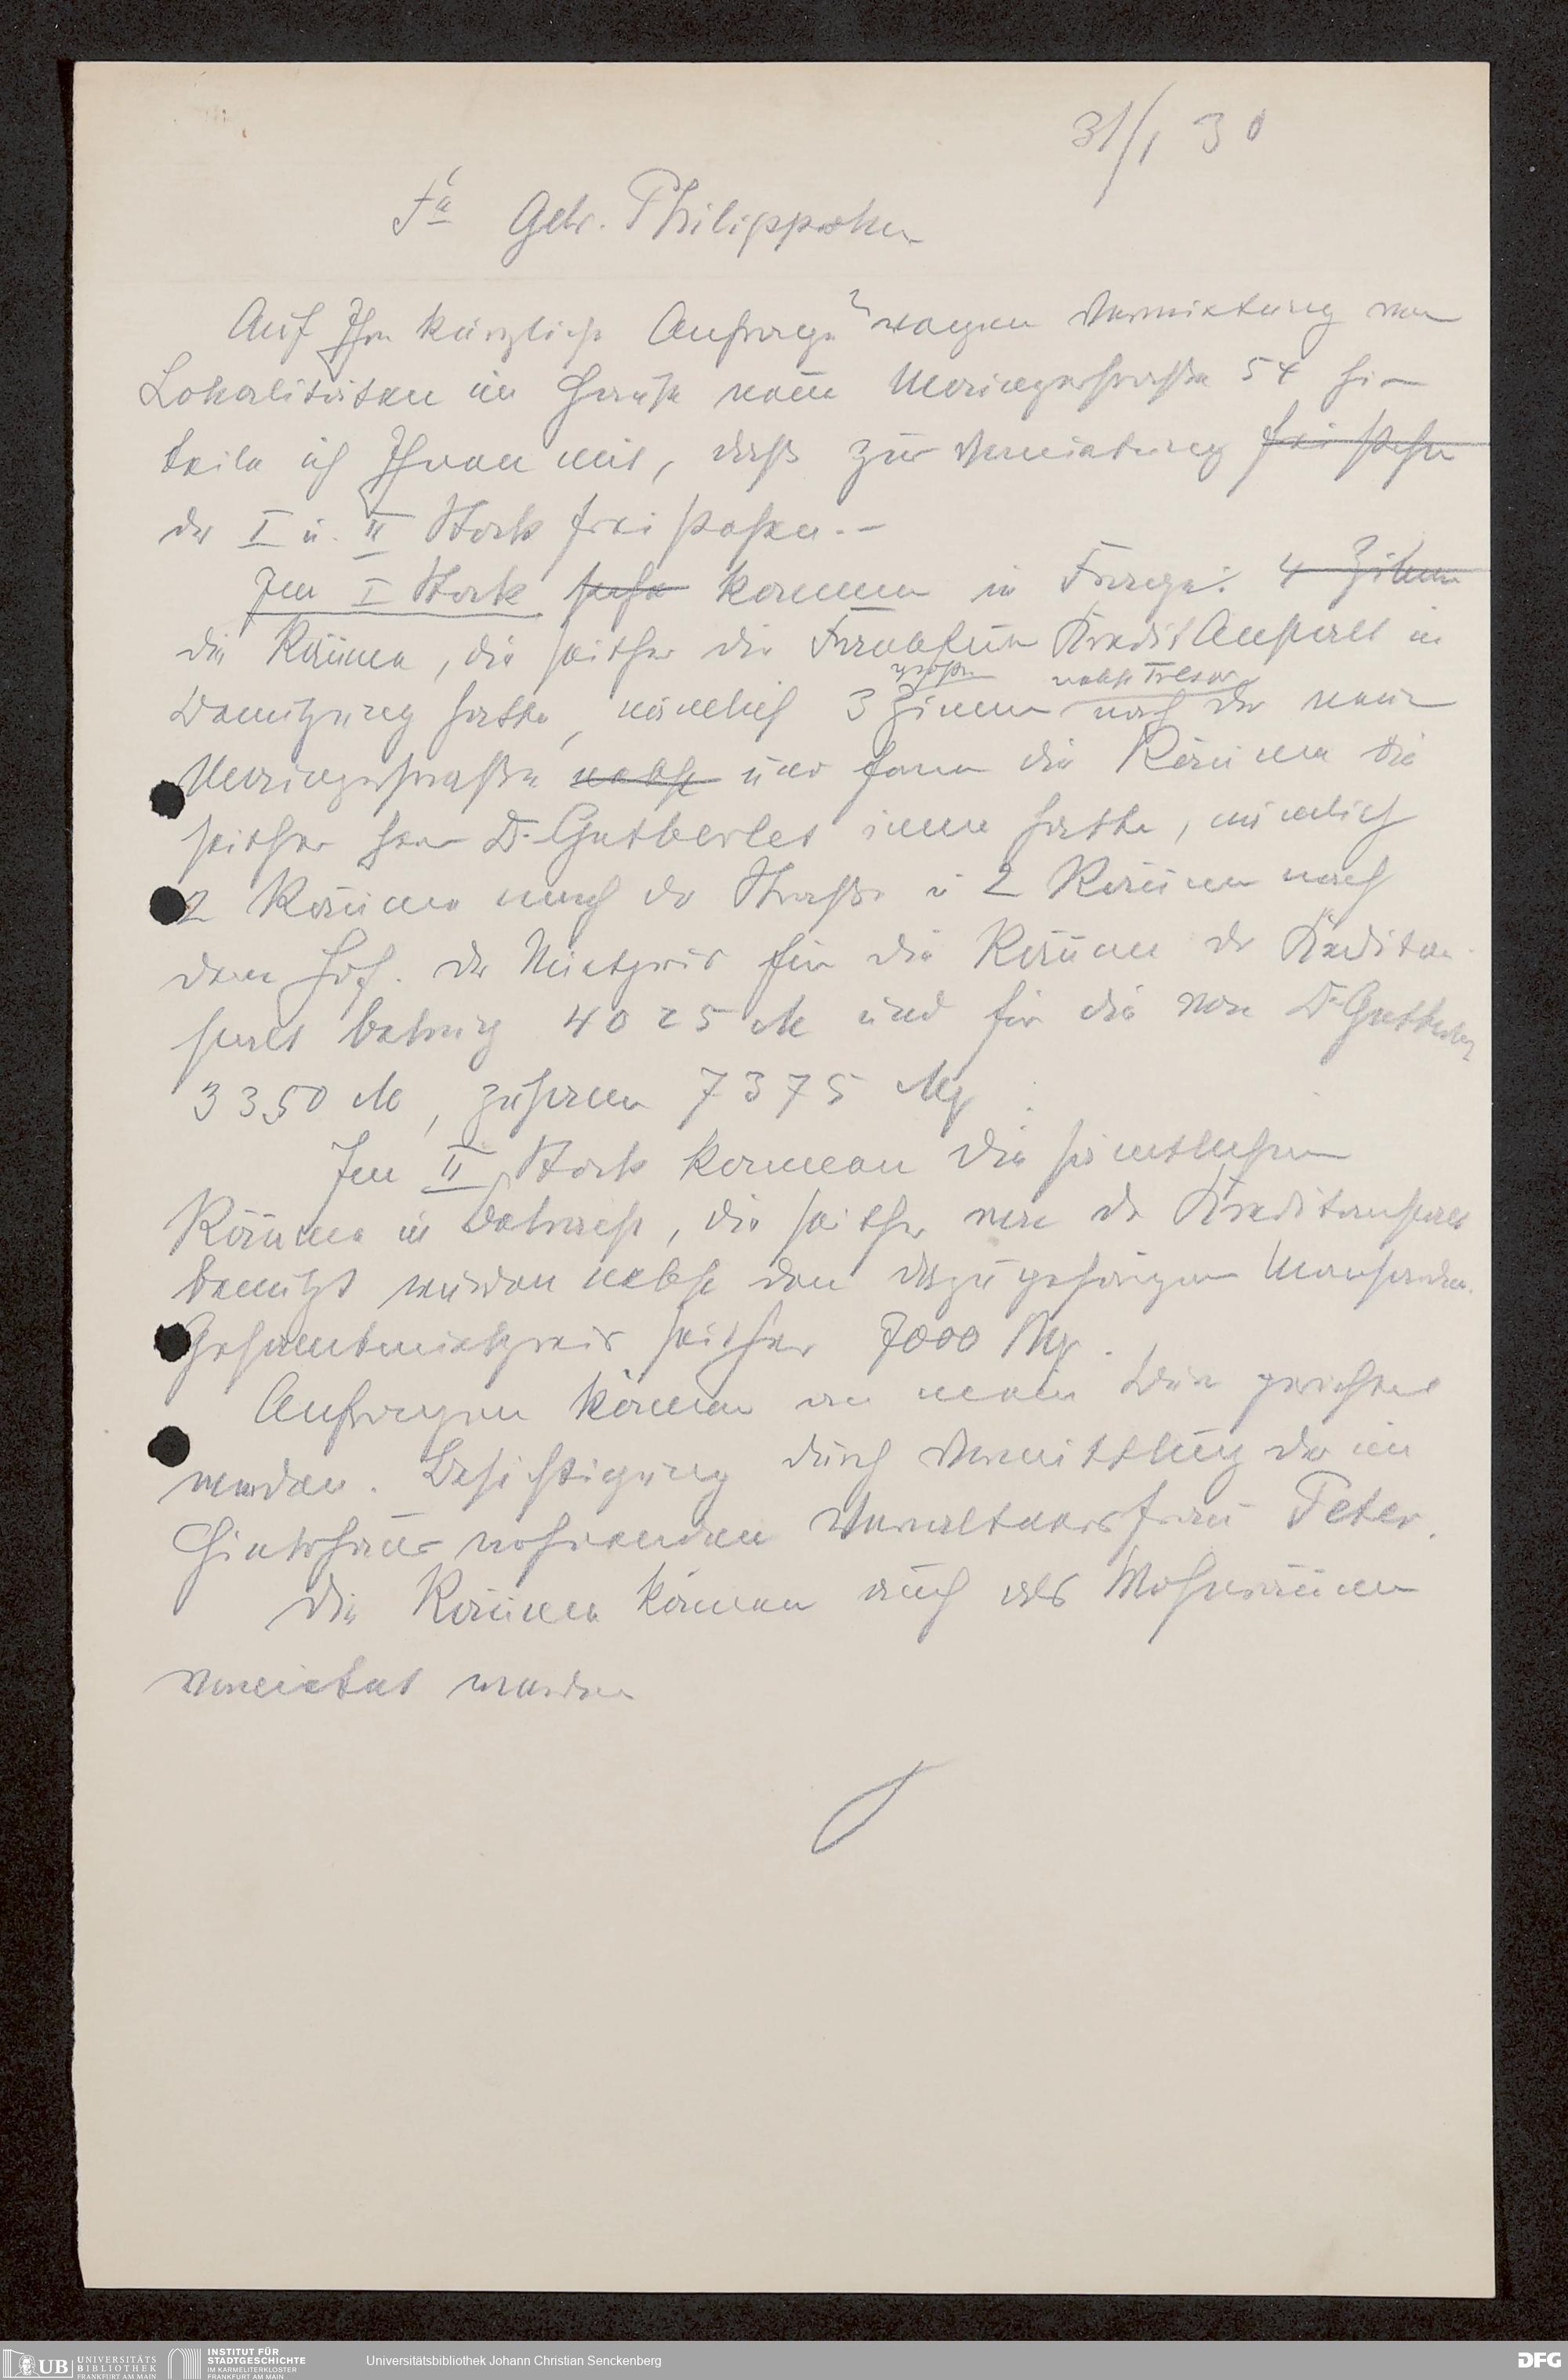 31/1 30
Fa Gebr. Philippsohn
Auf Ihre kürzliche Anfrage wegen Vermietung von
Lokalitäten im Hause neue Mainzerstraße 54 hier
teile ich Ihnen mit, daß zur Vermietung frei stehen
der I u. II Stock frei stehen.-
Im I Stock stehen kommen in Frage: 4 Zimmer
die Räume, die seither die Frankfurter Kredit Anstalt in
große nebst Tresor
Benutzung hatte, nämlich 3 Zimmer nach der neuen
Mainzerstraße nebst und ferner die Räume die
seither Herr Dr. Gutberlet inne hatte, nämlich
2 Räume nach der Straße u 2 Räume nach
dem Hof. Der Mietpreis für die Räume der Kreditan-
stalt betrug 4025 M und für die von Dr. Gutberlet
3350 M, zusammen 7375 Mk
Im II Stock kommen die sämtlichen
Räume in Betracht, die seither von der Kreditanstalt
benützt wurden nebst den dazu gehörigen Mansarden.
Gesamtmietpreis seither 7000 Mk.
Anfragen können an mein Büro gerichtet
werden. Besichtigung durch Vermittlung der im
Hinterhaus wohnenden Verwaltersfrau Peter.
Die Räume können auch als Wohnräume
vermietet werden
UB UNIVERSITÄTS
BIBLIOTHEK
FRANKFURT AM MAIN
INSTITUT FÜR
STADTGESCHICHTE
IM KARMELITERKLOSTER
FRANKFURT AM MAIN
Universitätsbibliothek Johann Christian Senckenberg
DFG